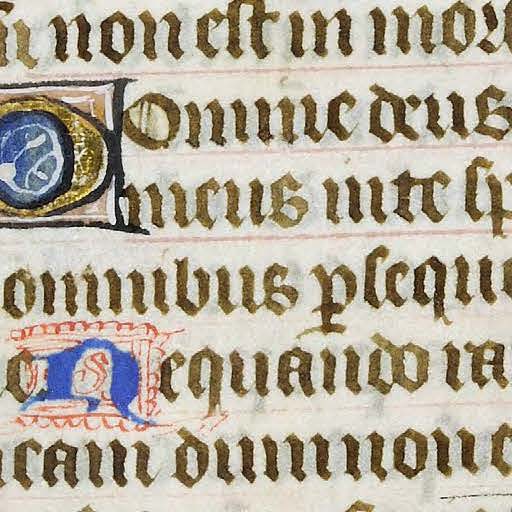 non est in mor
Domine deus
meus in te sp
omnibus ꝑseque
Nequando ra
meam dum non e